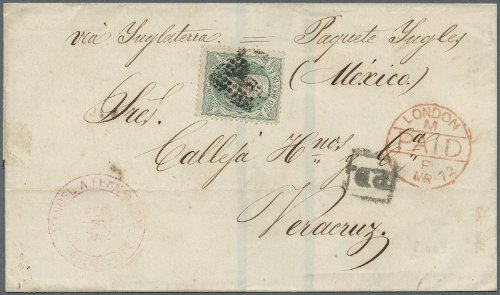 via Ynglaterra = Paquete Yngles
(México)
Sres.
Calleja Hnos. y Ca.
Veracruz.
LONDON
M
PAID
MR 72
P.D.
MANUEL A